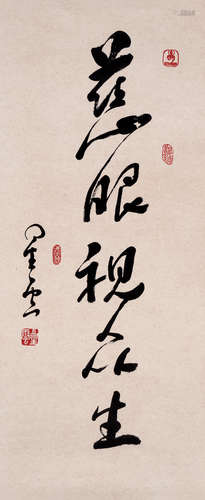 慈眼視众生
星雲